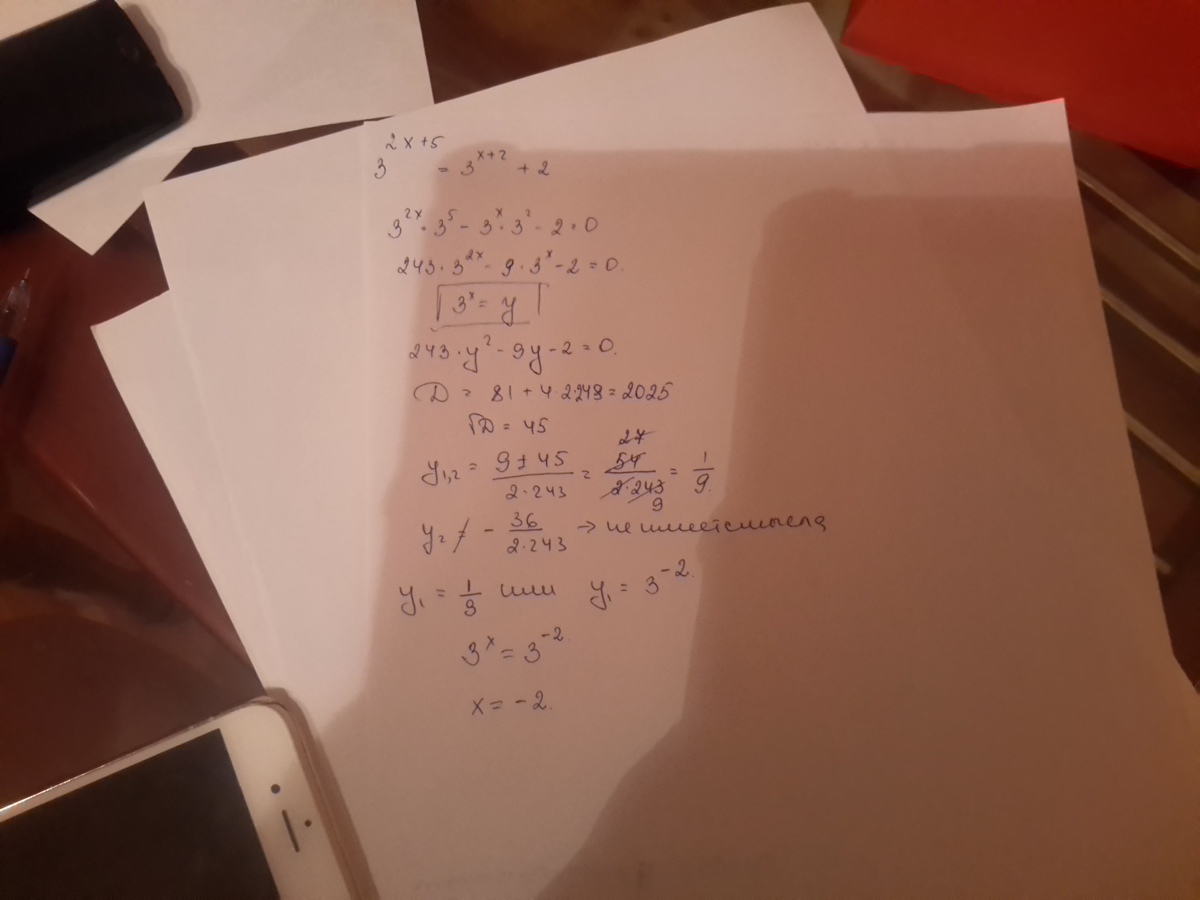 3^{2x+5} = 3^{x+2} + 2
3^{2x} · 3^5 - 3^x · 3^2 - 2 = 0
243 · 3^{2x} - 9 · 3^x - 2 = 0.
3^x = y
243 · y^2 - 9y - 2 = 0.
D = 81 + 4·2·243 = 2025
√D = 45
y_{1,2} = \frac{9 ± 45}{2·243} = \frac{54}{2·243} = \frac{1}{9}.
27
9
y_2 ≠ - \frac{36}{2·243} → не имеет смысла
y_1 = \frac{1}{9} или y_1 = 3^{-2}.
3^x = 3^{-2}.
x = -2.